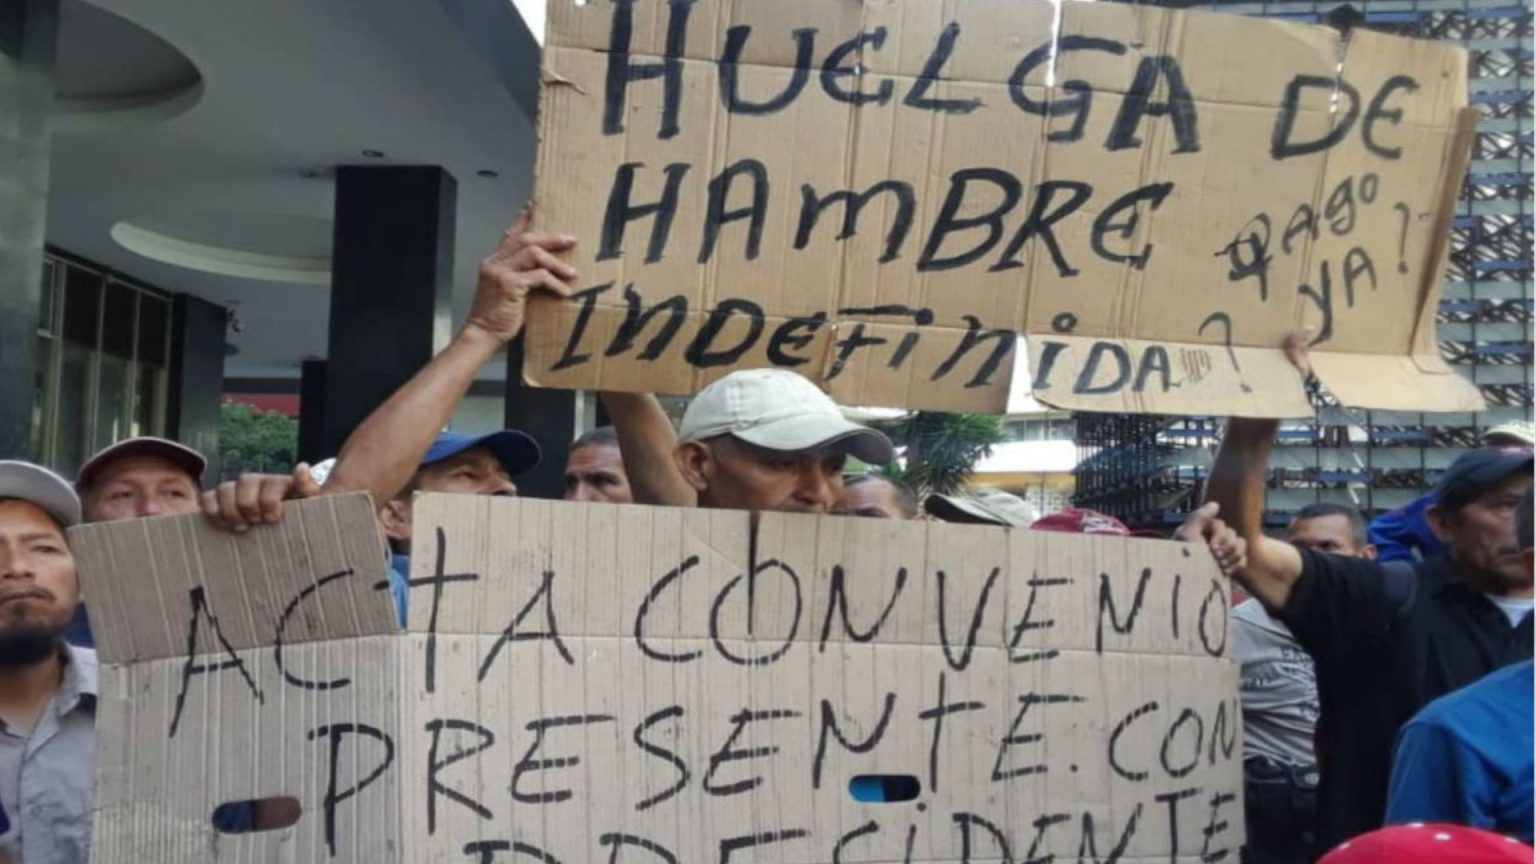 HUELGA DE
HAMBRE
INDEFINIDA?
PAgo
YA?
ACTA CONVENIO
PRESENTE. CON
PRESiDENTE